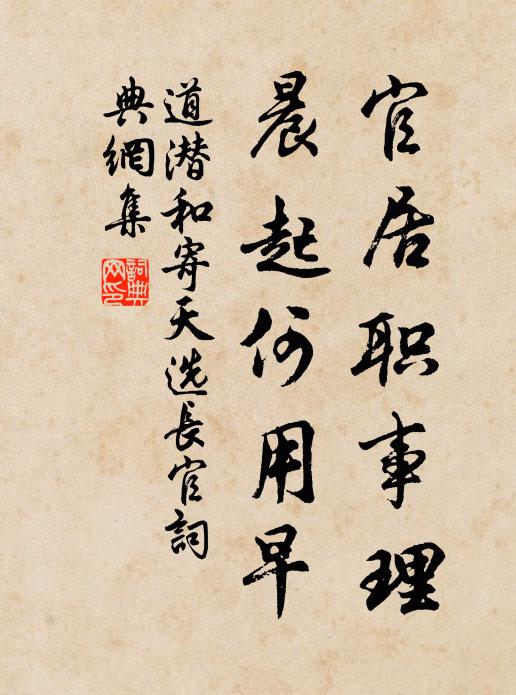 官居职事理
晨起何用早
道潜和寄天选長官詞
典網集
詞典
网印